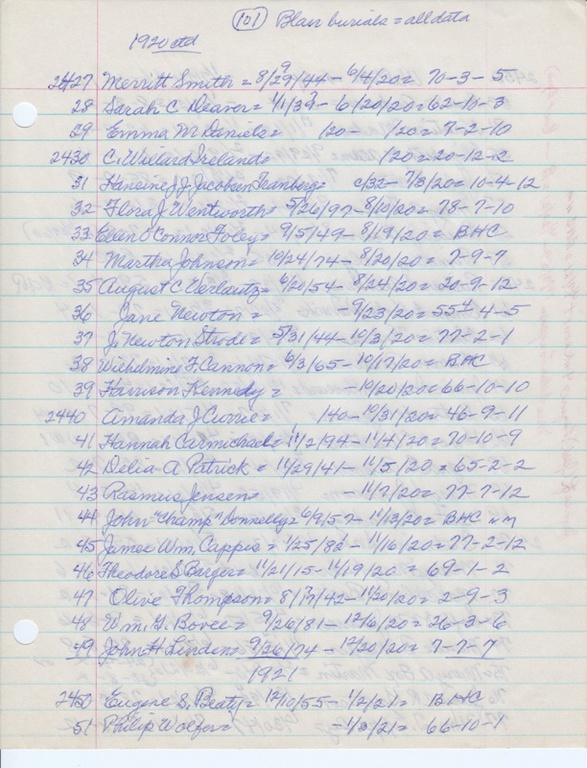 (101) Blair burials = all data
1920 ctd
2427 Merritt Smith = 8/29/44 - 6/4/20 = 70-3-5
28 Sarah C Deaver = 1/1/39 - 6/20/20 = 62-10-3
29 Emma McDaniels = /20 - /20 = 7-2-10
2430 C. Willard Ireland = /20 = 20-12-2
31 Hansine J.J. Jacobsen Tranberg = c/32 - 7/3/20 = 10-4-12
32 Flora J. Wentworth = 5/26/97 - 8/10/20 = 78-7-10
33 Ellen O'Connor Foley = 9/5/49 - 8/19/20 = BHC
34 Martha Johnson = 10/24/74 - 8/20/20 = 7-9-7
35 August C Verlautz = 6/20/54 - 8/24/20 = 20-9-12
36 Jane Newton = - 9/23/20 = 55-4-5
37 J. Newton Strode = 5/31/44 - 10/3/20 = 77-2-1
38 Wilhelmine F. Cannon = 6/3/65 - 10/17/20 = BHC
39 Harrison Kennedy = - 10/20/20 = 66-10-10
2440 Amanda J Currie = /40 - 10/31/20 = 46-9-11
41 Hannah Carmichael = 11/2/94 - 11/4/20 = 70-10-9
42 Delia A Patrick = 11/29/41 - 11/5/20 = 65-2-2
43 Rasmus Jensen = - 11/7/20 = 77-7-12
44 John "Champ" Donnelly = 6/9/57 - 11/13/20 = BHC n m
45 James Wm. Cappis = 1/25/82 - 11/16/20 = 77-2-12
46 Theodore S Barger = 11/21/15 - 11/19/20 = 69-1-2
47 Olive Thompson = 8/17/42 - 11/20/20 = 2-9-3
48 Wm. G. Bovee = 9/26/81 - 12/6/20 = 26-3-6
49 John H Linden = 9/26/74 - 12/20/20 = 7-7-7
1921 =
2450 Eugene S. Beaty = 12/10/55 - 1/2/21 = BHC
51 Philip Wolfer = - 1/3/21 = 66-10-1